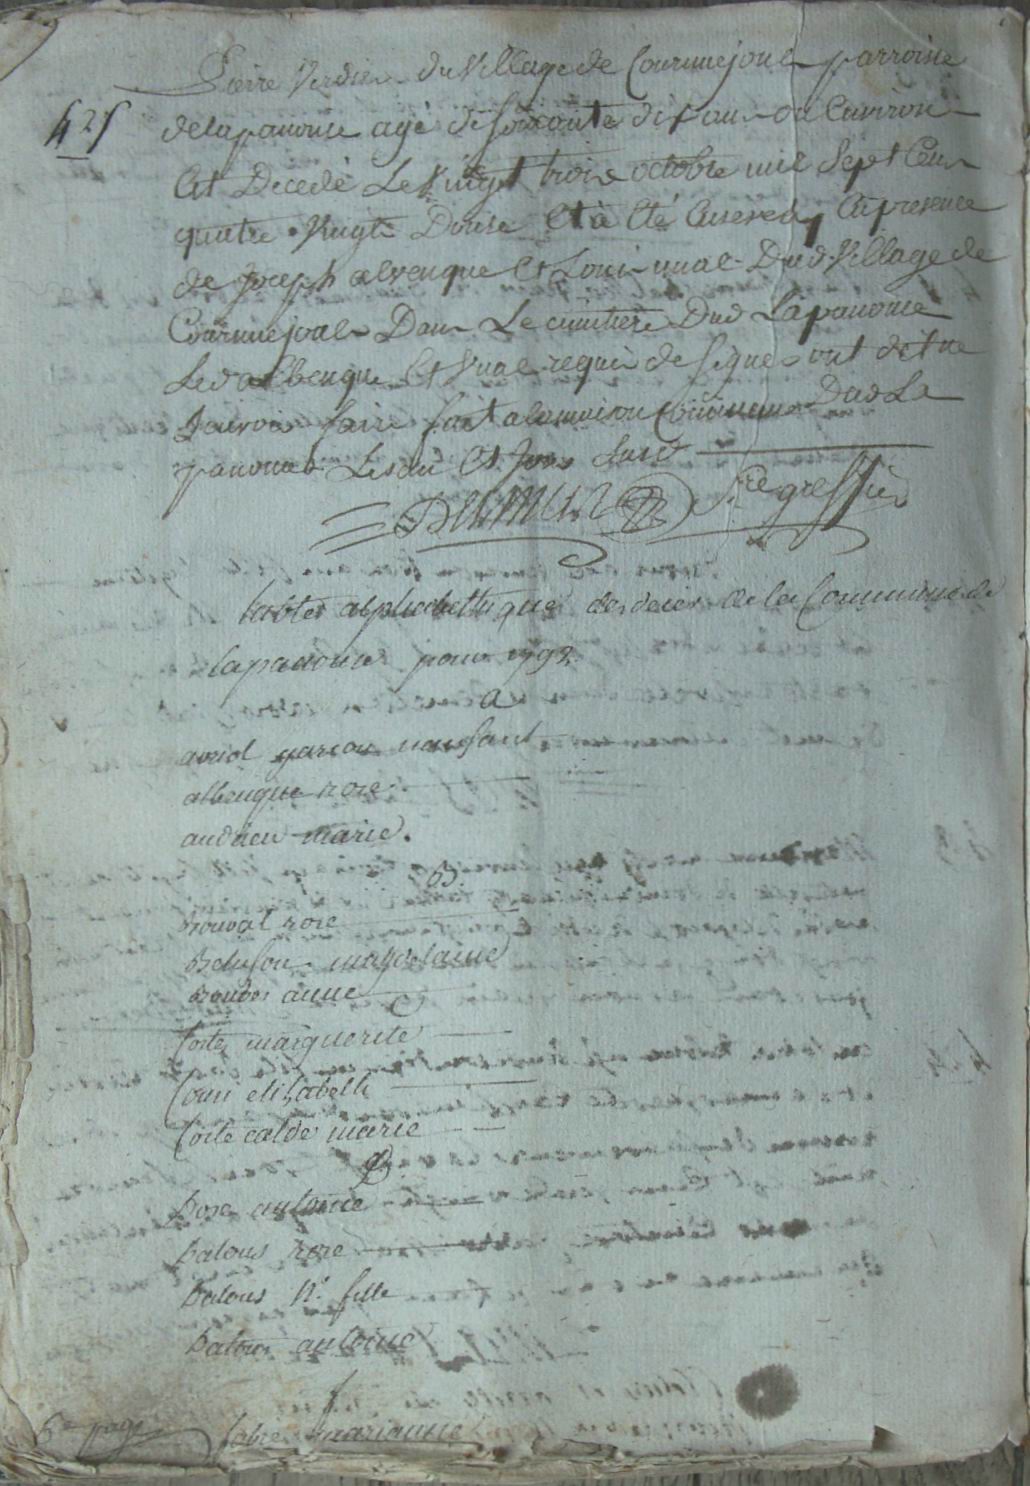 Pierre Verdier du Village de Cournuejouls parroisse
425
de lapanouse agé de soixante dix ans ou Environ
Est Decedé Le Vingt trois octobre mil Sept Cens
quatre Vingts Douse Et a Eté Enterré En presence
de Joseph albenque Et Louis nual Dud. Village de
Cournuejouls Dans Le cimitiere Dud Lapanouse
Led albenque Et nual requis de signer ont dit ne
Scavoir faire fait a la maison Commune Dud La
panouse Les an Et Jour Susd
S.re greffier
tables alphabethique des deces de la Commune de
lapanouse pour 1792
a
auriol garcon enfant
albenque rose
audrieu marie.
B
Bouval rose
magdelaine
anne
C
Costes marguerite
elizabeth
Coste calde marie
D
antoine
Dalous rose
Dalous N. fille
Dalous antoine
f
fabre marianne
6e page